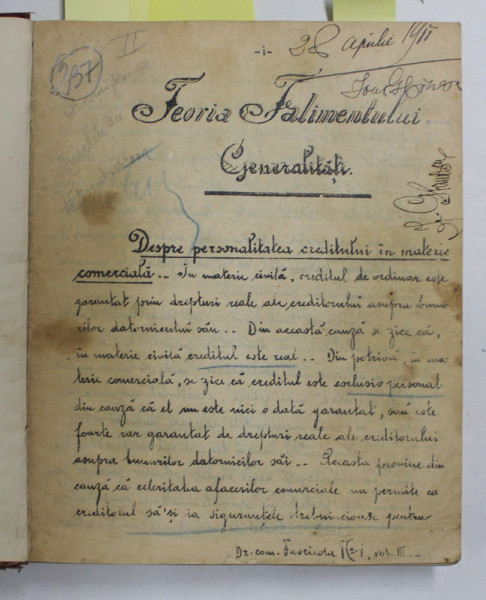 -1-
II
257
28 Aprilie 1911
Teoria Falimentului
Generalități.
Despre personalitatea creditului în materie
comercială.- In materie civilă, creditul de ordinar este
garantat prin drepturi reale ale creditorului asupra bunu
rilor datornicului său.- Din această cauză se zice că,
in materie civilă creditul este real.- Din potrivă, in ma
terii comercială, se zice că creditul este esclusiv personal
din cauză că el nu este nici o dată garantat, sau este
foarte rar garantat de drepturi reale ale creditorului
asupra bunurilor datornicilor săi.- Aceasta provine din
cauză că celeritatea afacerilor comerciale nu permite ca
creditorul să'și ia siguranțele trebuincioase pentru
Dr. com. Fascicola I, vol. III.-